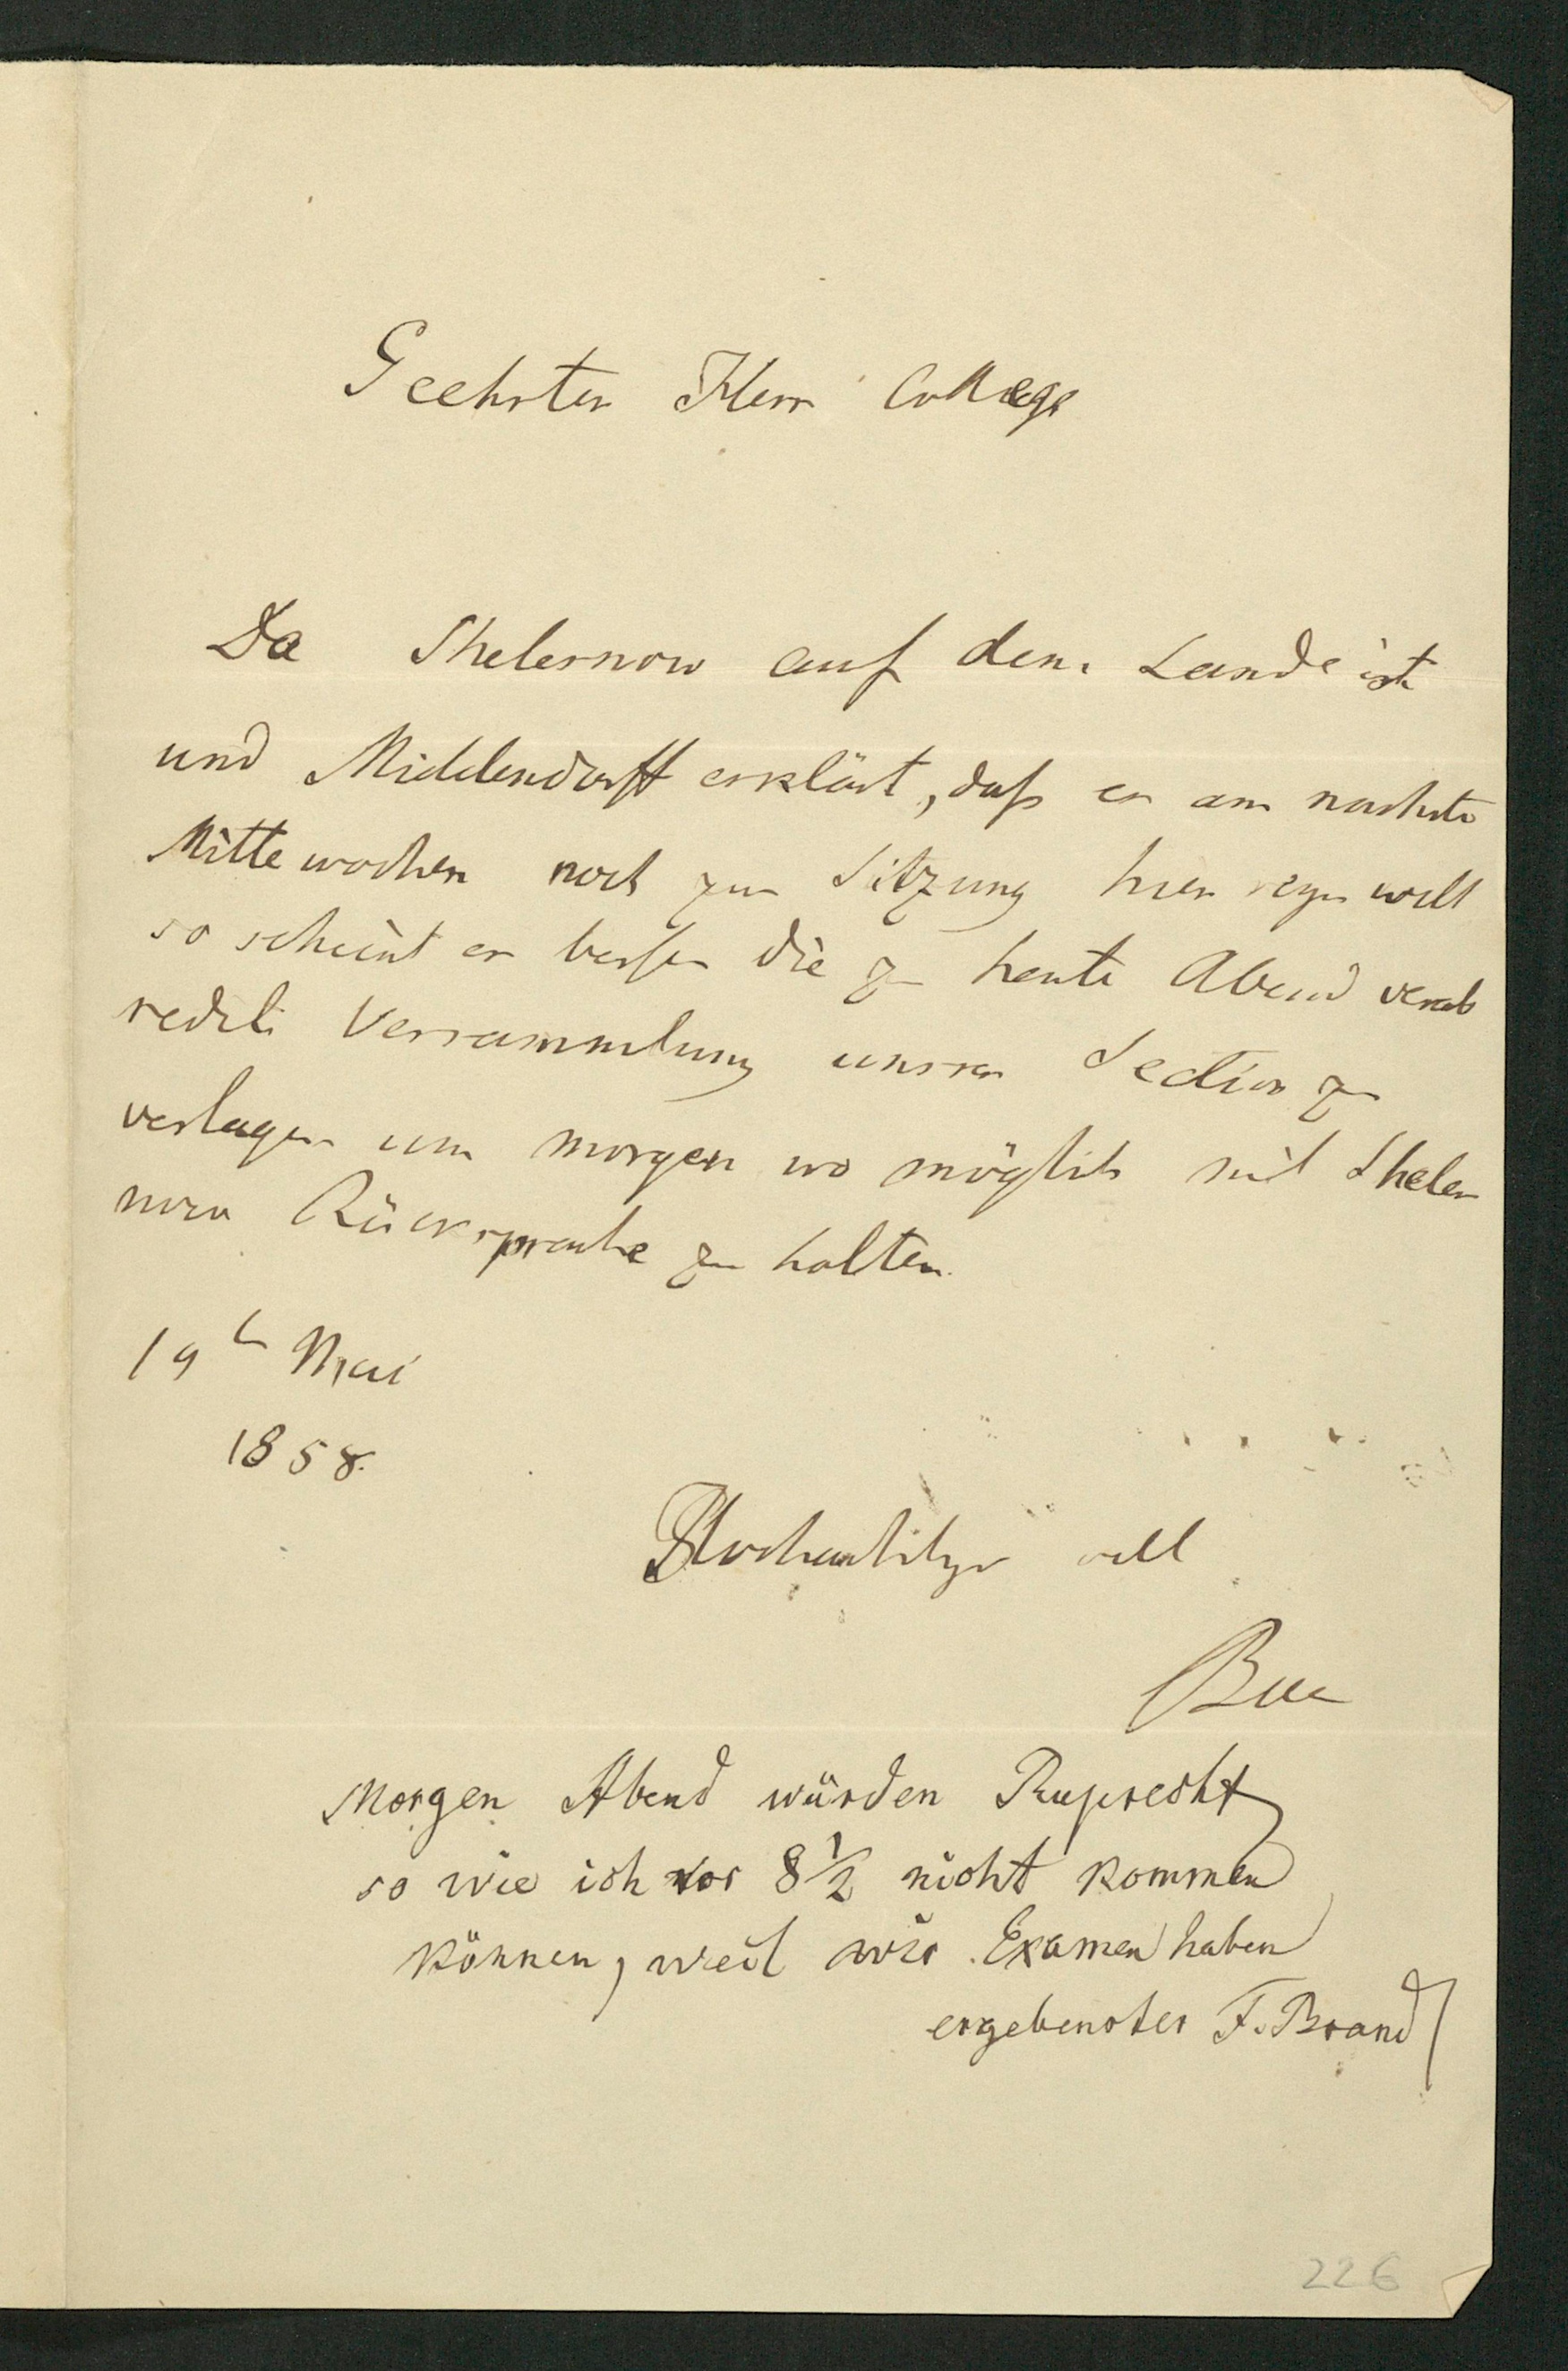 Geehrter Herr College
Da Shelesnow auf dem Lande ist
und Middendorff erklärt, daß er am nachste
Mittewochen noch zur Sitzung hier seyn will
so scheint es besser die zu heute Abend verab
redete Versammlung unsrer Section zu
vertagen um morgen wo möglich mit Sheles
now Rücksprache zu halten.
19t Mai
1858.
Hochachtungsvoll
Baer
Morgen Abend würden Ruprecht
so wie ich vor 8 1/2 nicht kommen
können, weil wir Examen haben
ergebenster F. Brandt
226